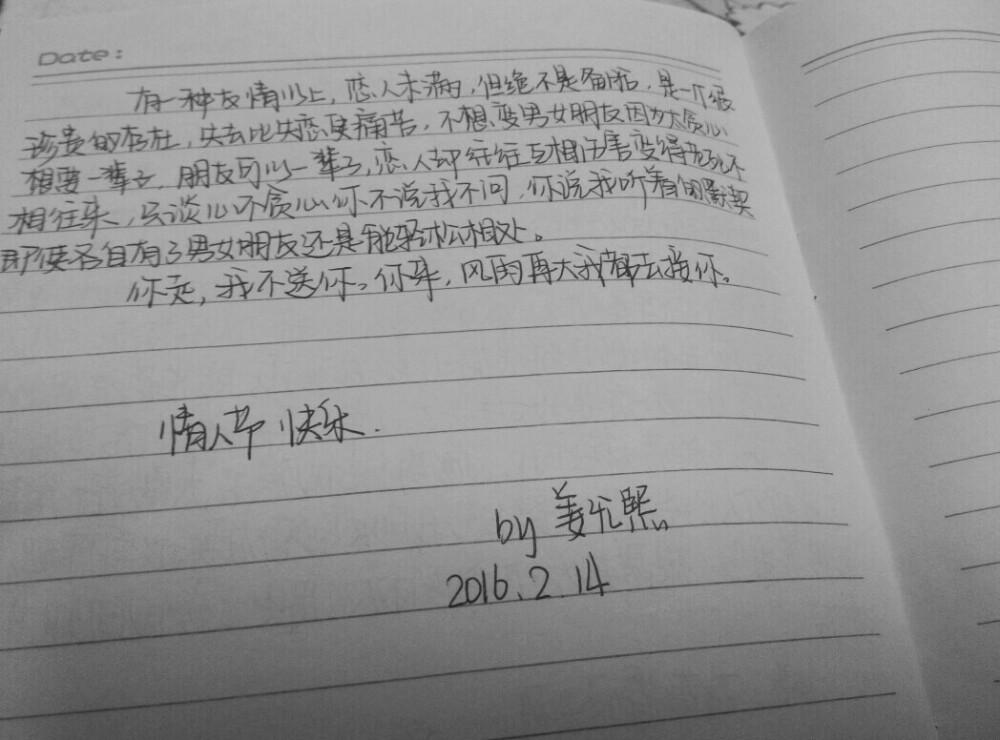 Date:
有一种友情以上，恋人未满，但绝不是暧昧，是一个很
珍贵的存在，失去比失恋更痛苦，不想变男女朋友因为太贪心
想要一辈子，朋友可以一辈子，恋人却往往互相伤害变得老死不
相往来，只谈心不贪心，你不说我不问，你说我听着的默契
即使各自有了男女朋友还是能轻松相处。
你走，我不送你。你来，风雨再大我都去接你。
情人节快乐.
by 姜允熙
2016.2.14